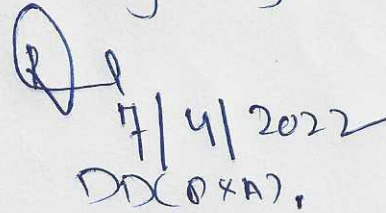 7/4/2022
DD(PXA).